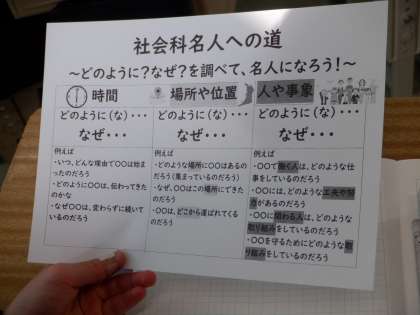 社会科名人への道
～どのように？なぜ？を調べて、名人になろう！～
時間
どのように（な）・・・
なぜ・・・
例えば
・いつ、どんな理由で〇〇は始まったのだろう
・どのように〇〇は、伝わってきたのかな
・なぜ〇〇は、変わらずに続いているのだろう
場所や位置
どのように（な）・・・
なぜ・・・
例えば
・どのような場所に〇〇はあるのだろう（集まっているのだろう）
・なぜ、〇〇はこの場所にできたのだろう
・〇〇は、どこから運ばれてくるのだろう
人や事象
どのように（な）・・・
なぜ・・・
例えば
・〇〇で働く人は、どのような仕事をしているのだろう
・〇〇には、どのような工夫や努力があるのだろう
・〇〇に関わる人は、どのような取り組みをしているのだろう
・〇〇を守るためにどのような取り組みをしているのだろう